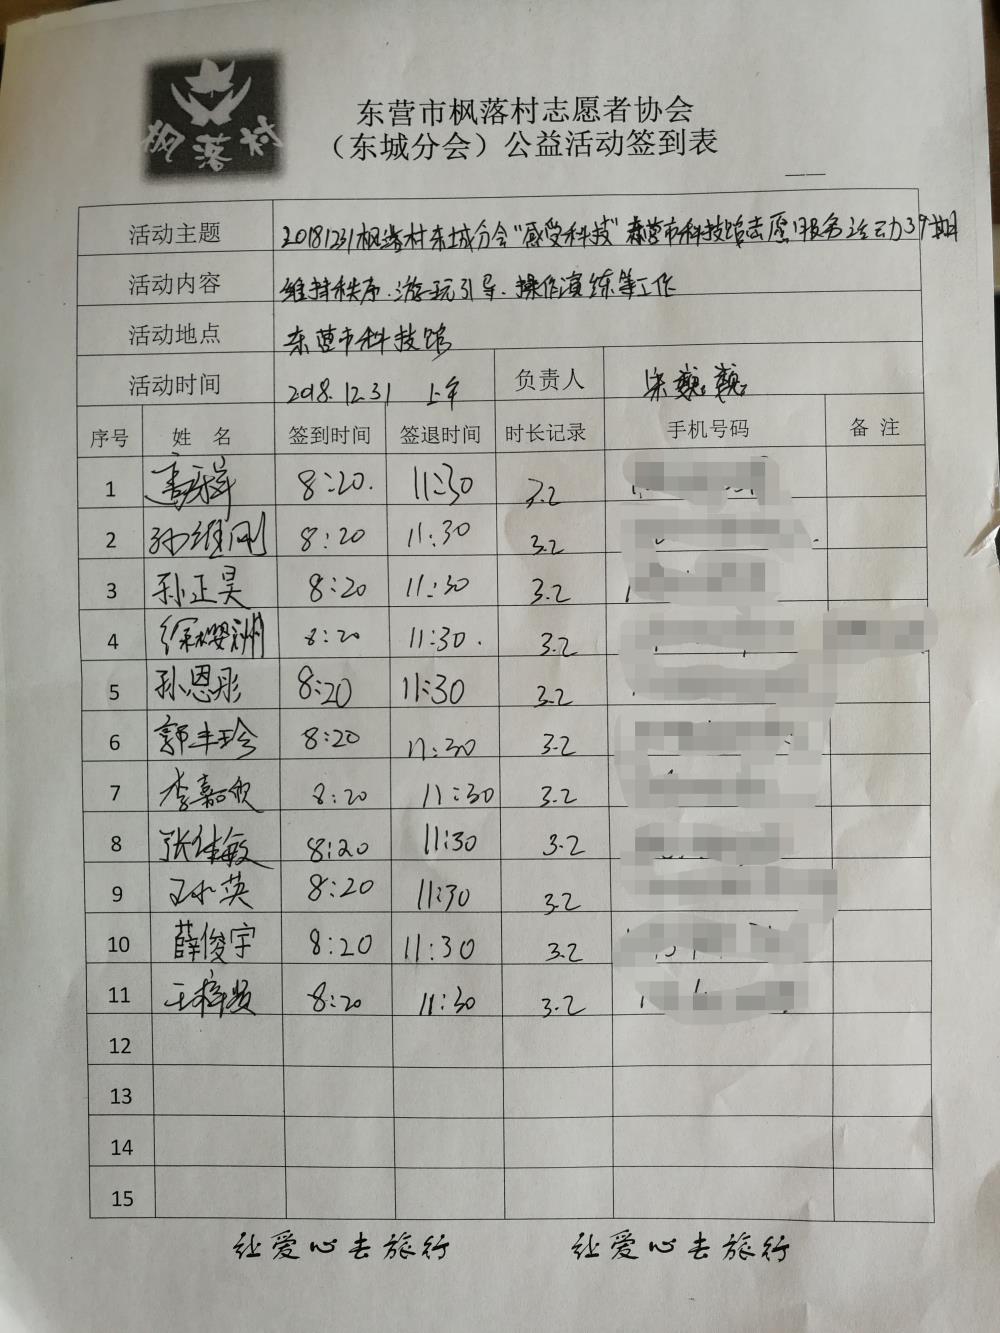 枫落村
东营市枫落村志愿者协会
（东城分会）公益活动签到表
活动主题 20181231枫落村东城分会"感受科技"东营市科技馆志愿服务活动39期
活动内容 维持秩序、游玩引导、操作演练等工作
活动地点 东营市科技馆
活动时间 2018.12.31 上午 负责人 宋巍巍
序号 姓 名 签到时间 签退时间 时长记录 手机号码 备 注
1 8:20. 11:30 3.2
2 孙维刚 8:20 11:30 3.2
3 孙正昊 8:20 11:30 3.2
4 8:20 11:30. 3.2
5 孙恩彤 8:20 11:30 3.2
6 郭丰珍 8:20 11:30 3.2
7 李嘉欣 8:20 11:30 3.2
8 张佳敏 8:20 11:30 3.2
9 王小英 8:20 11:30 3.2
10 薛俊宇 8:20 11:30 3.2
11 王梓 8:20 11:30 3.2
12
13
14
15
让爱心去旅行 让爱心去旅行